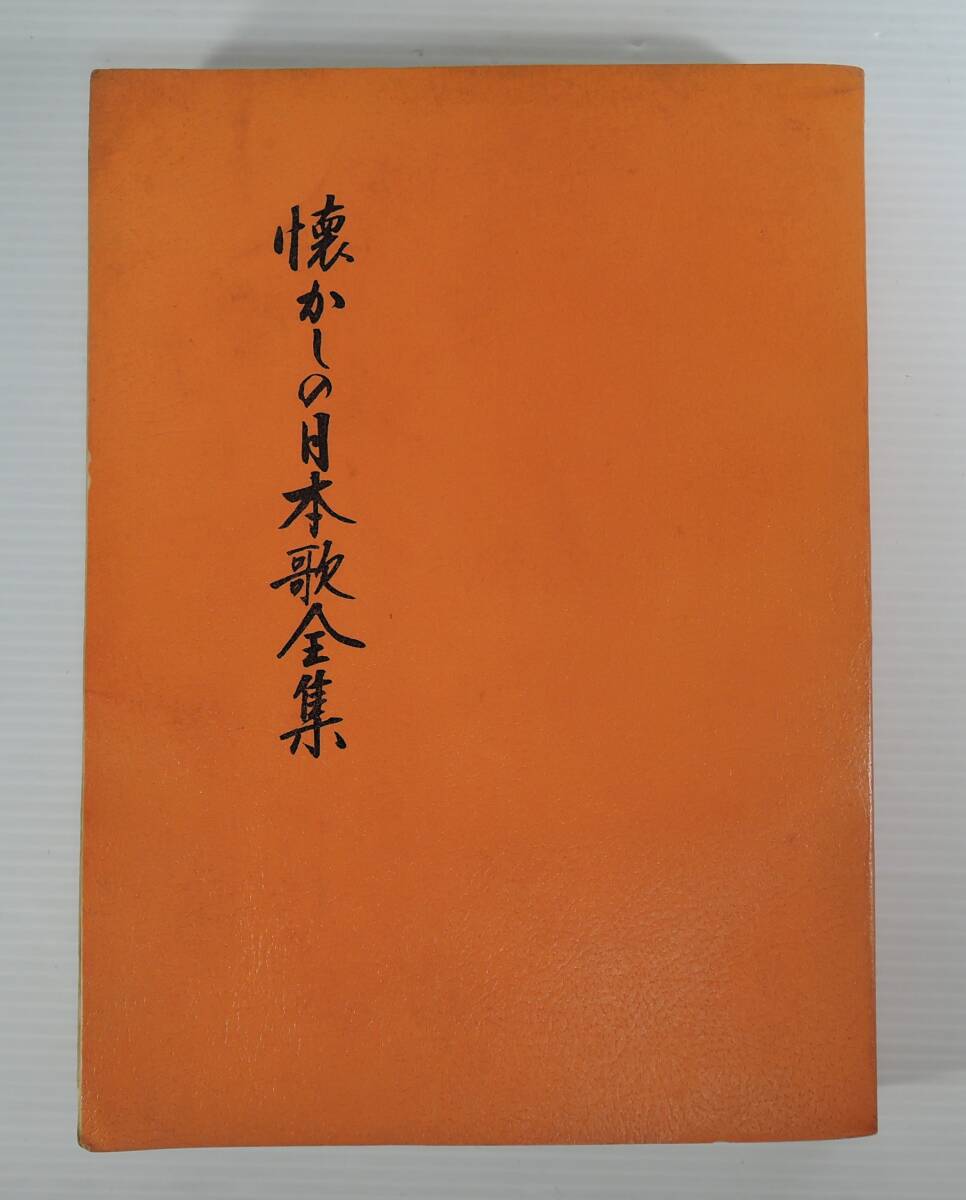 懐かしの日本歌全集